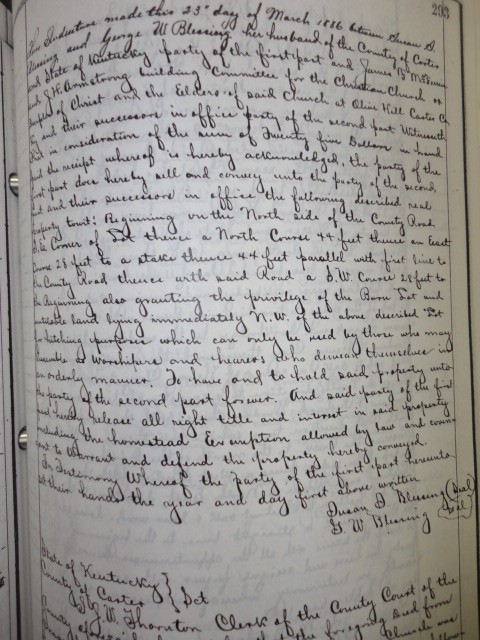 293
This Indenture made this 23" day of March 1886 between Susan D.
Blessing and George W Blessing her husband of the County of Carter
and State of Kentucky party of the first part and James B
and J. H. Armstrong building Committee for the Christian Church or
Temple of Christ and the Elders of said Church at Olive Hill Carter Co
Ky and their successors in office party of the second part Witnesseth
that in consideration of the sum of Twenty five Dollars in hand
paid the receipt whereof is hereby acknowledged, the party of the
first part does hereby sell and convey unto the party of the second,
part and their successors in office the following described real
property towit: Beginning on the North side of the County Road
S.E. Corner of Lot thence a North Course 44 feet thence an East
Course 28 feet to a stake thence 44 feet parallel with first line to
the County Road thence with said Road a S.W. Course 28 feet to
the Beginning also granting the privilege of the Barn Lot and
land lying immediately N.W. of the above described Lot
for hitching purposes which can only be used by those who may
assemble as Worshipers and hearers who demean themselves in
an orderly manner. To have and to hold said property unto
the party of the second part forever. And said party of the first
part hereby release all right title and interest in said property
including the homestead Exemption allowed by law and coven-
ant to Warrant and defend the property hereby conveyed.
In Testimony Whereof the party of the first part hereunto
set their hands the year and day first above written
Susan D. Blessing (Seal)
G. W Blessing (Seal)
State of Kentucky }
County of Carter } Sct
I J. W. Thornton Clerk of the County Court of the
County that the foregoing deed from
was